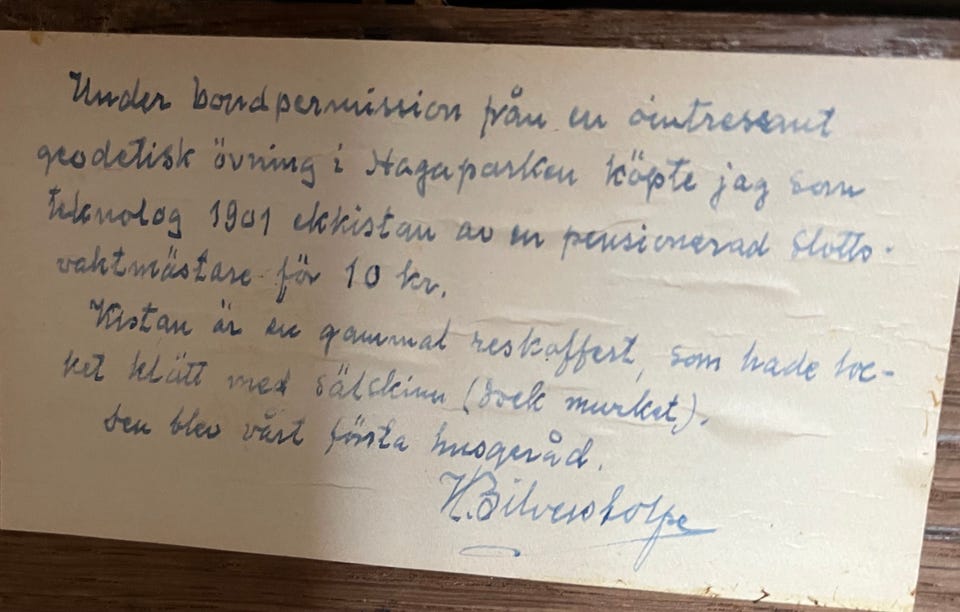 Under bondpermission från en ointressant
geodetisk övning i Hagaparken köpte jag som
teknolog 1901 ekkistan av en pensionerad slotts-
vaktmästare för 10 kr.
Kistan är en gammal reskoffert, som hade loc-
ket klätt med sälskinn (dock murket).
Den blev vårt första husgeråd.